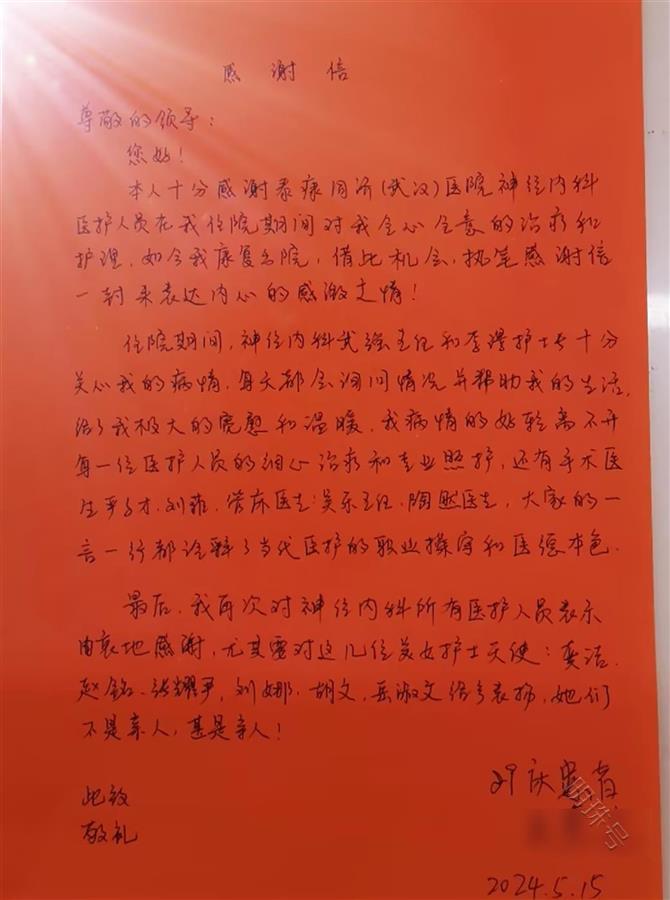 感谢信
尊敬的领导：
您好！
本人十分感谢泰康同济（武汉）医院神经内科
医护人员在我住院期间对我全心全意的治疗和
护理，如今我康复出院，借此机会，执笔感谢信
一封来表达内心的感激之情！
住院期间，神经内科武强主任和李瑾护士长十分
关心我的病情，每天都会询问情况并帮助我的生活，
给了我极大的宽慰和温暖，我病情的好转离不开
每一位医护人员的细心治疗和专业照护，还有手术医
生 刘菲、管床医生：吴乐主任、陶然医生，大家的一
言一行都诠释了当代医护的职业操守和医德本色。
最后，我再次对神经内科所有医护人员表示
由衷地感谢，尤其要对这几位美女护士天使：龚洁、
赵铭、张耀尹、刘娜、胡文、岳淑文给予表扬，她们
不是亲人，甚是亲人！
患者
此致
敬礼
2024.5.15
明珠号